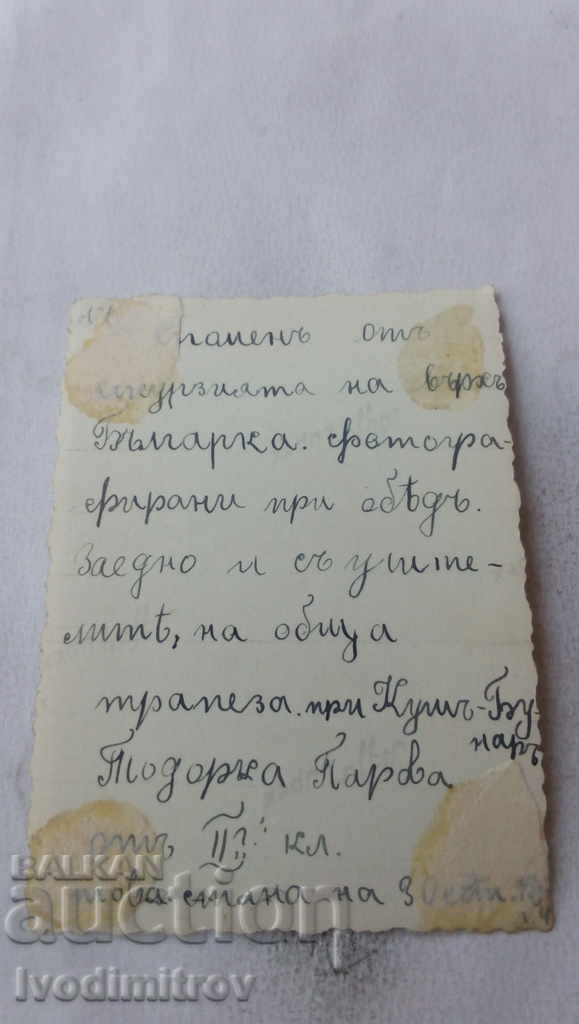 отъ
на върхъ
Българка. фотогра-
фирани при обѣдъ.
Заедно и съ учите-
литѣ, на обща
трапеза. при Кушъ-Бу-
наръ
Тодорка Парва
отъ II кл.
това стана на 3
BALKAN
auction
Ivodimitrov